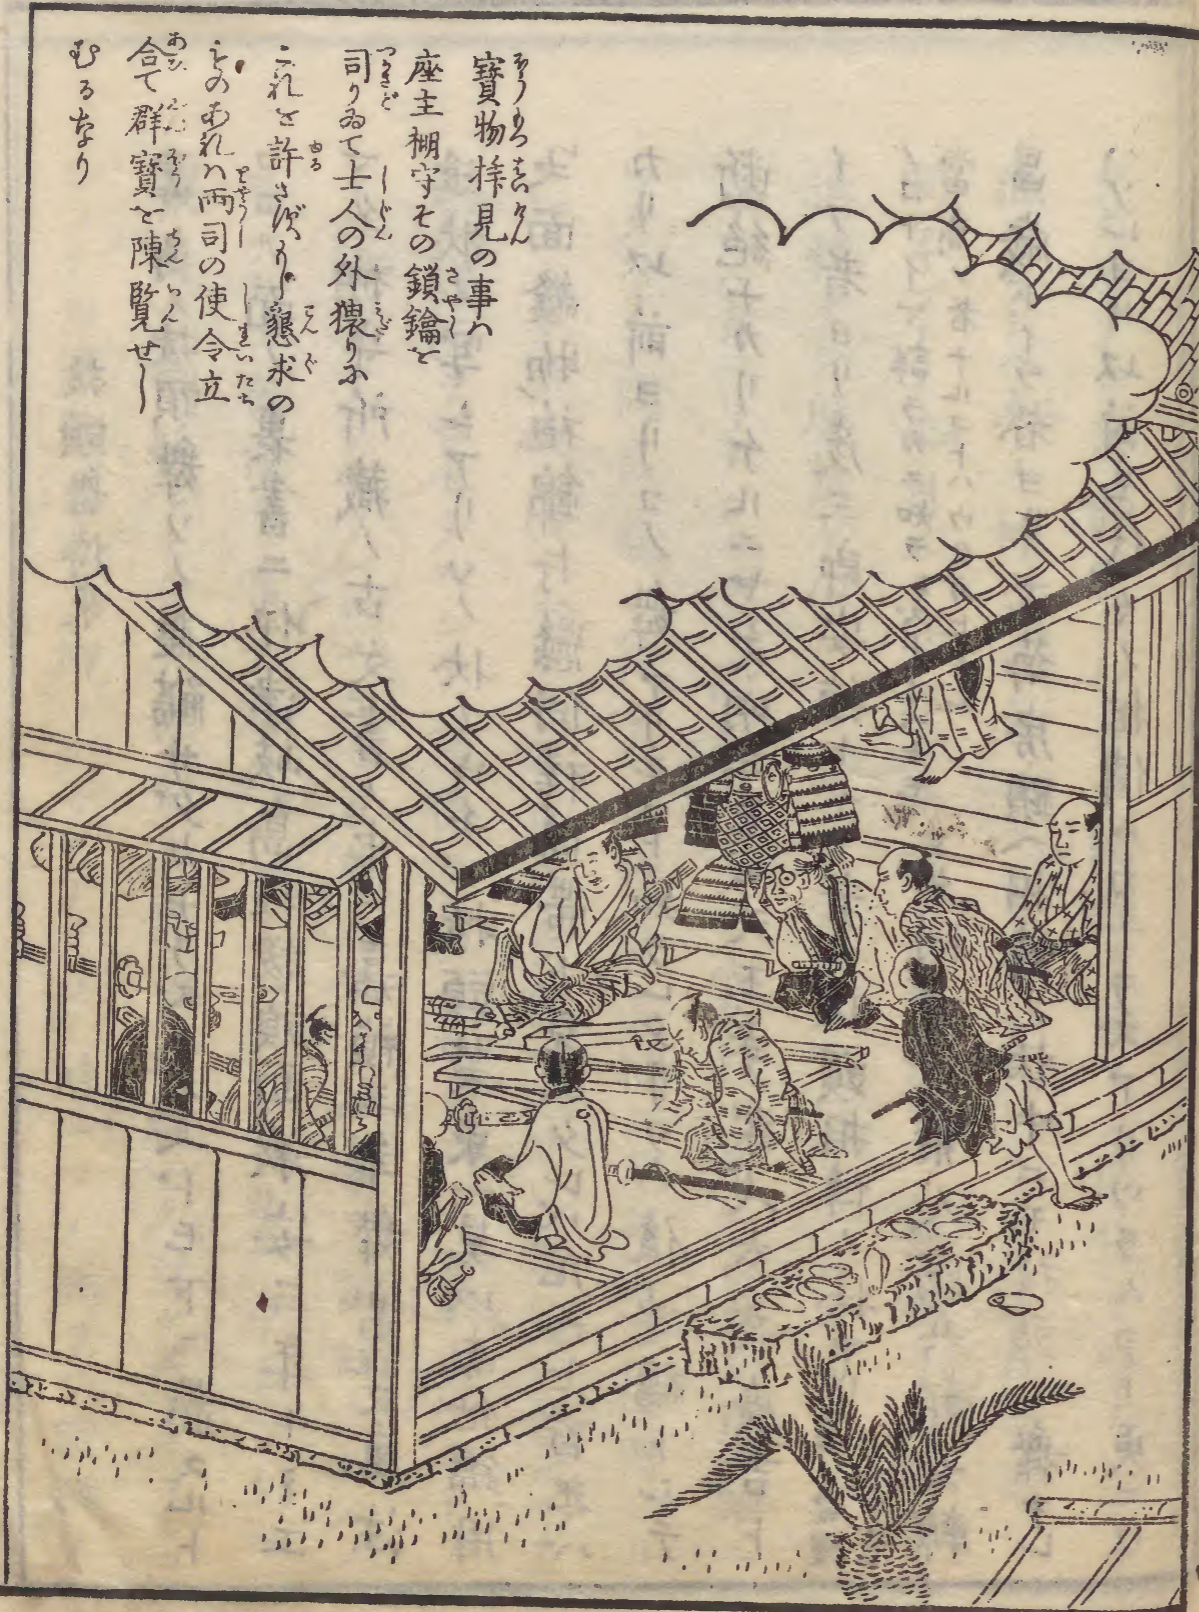 寶物拝見の事ハ
座主棚守その鎖鑰を
司りゐて士人の外猥りに
これを許さずもし懇求の
ものあれハ両司の使令立
合て群寶を陳覧せし
むるなり